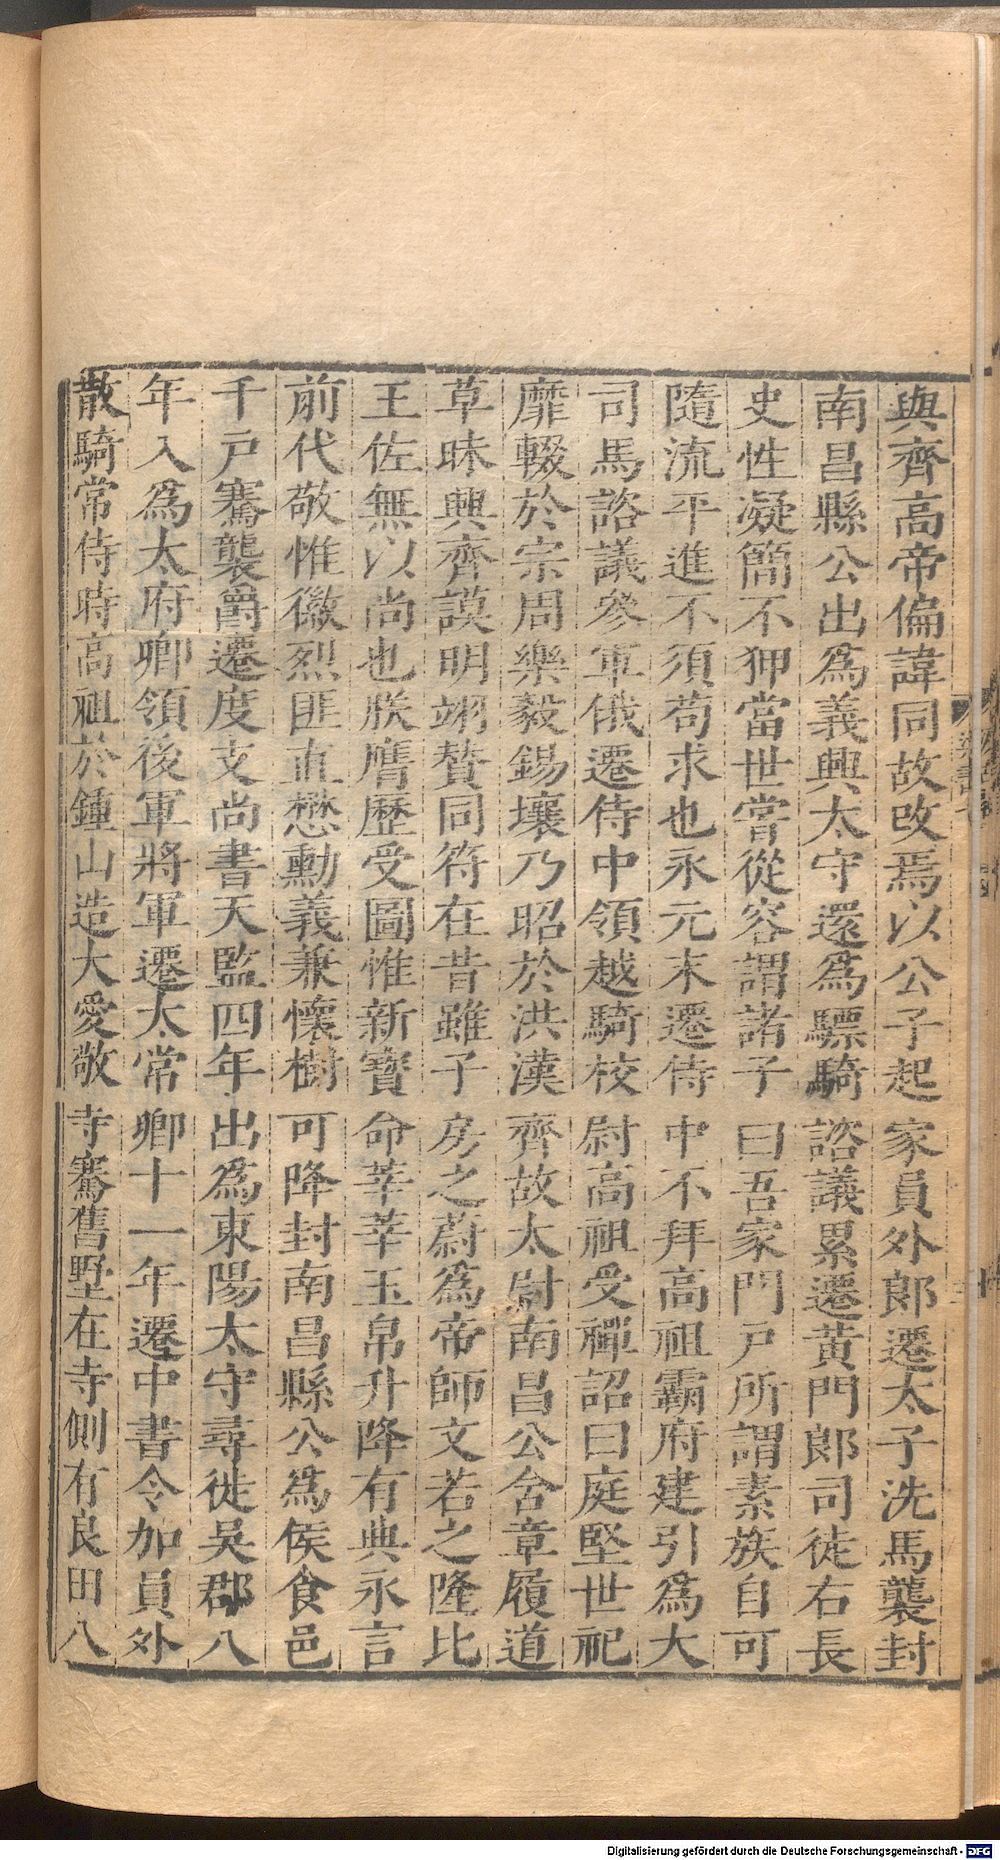 與齊高帝偏諱同故改焉以公子起家員外郎遷太子洗馬襲封
南昌縣公出爲義興太守還爲驃騎諮議累遷黃門郎司徒右長
史性凝簡不狎當世嘗從容謂諸子曰吾家門戸所謂素族自可
隨流平進不須苟求也永元末遷侍中不拜高祖霸府建引爲大
司馬諮議參軍俄遷侍中領越騎校尉高祖受禪詔曰庭堅世祀
靡輟於宗周樂毅錫壤乃昭於洪漢齊故太尉南昌公含章履道
草昧興齊謨明翊贊同符在昔雖子房之蔚爲帝師文若之隆比
王佐無以尚也朕膺歷受圖惟新寳命莘莘玉帛升降有典永言
前代敬惟徽烈匪直懋勳義兼懷樹可降封南昌縣公爲侯食邑
千戸騫襲爵遷度支尚書天監四年出爲東陽太守尋徙吳郡八
年入爲太府卿領後軍將軍遷太常卿十一年遷中書令加員外
散騎常侍時高祖於鍾山造大愛敬寺騫舊墅在寺側有良田八
Digitalisierung gefördert durch die Deutsche Forschungsgemeinschaft - DFG